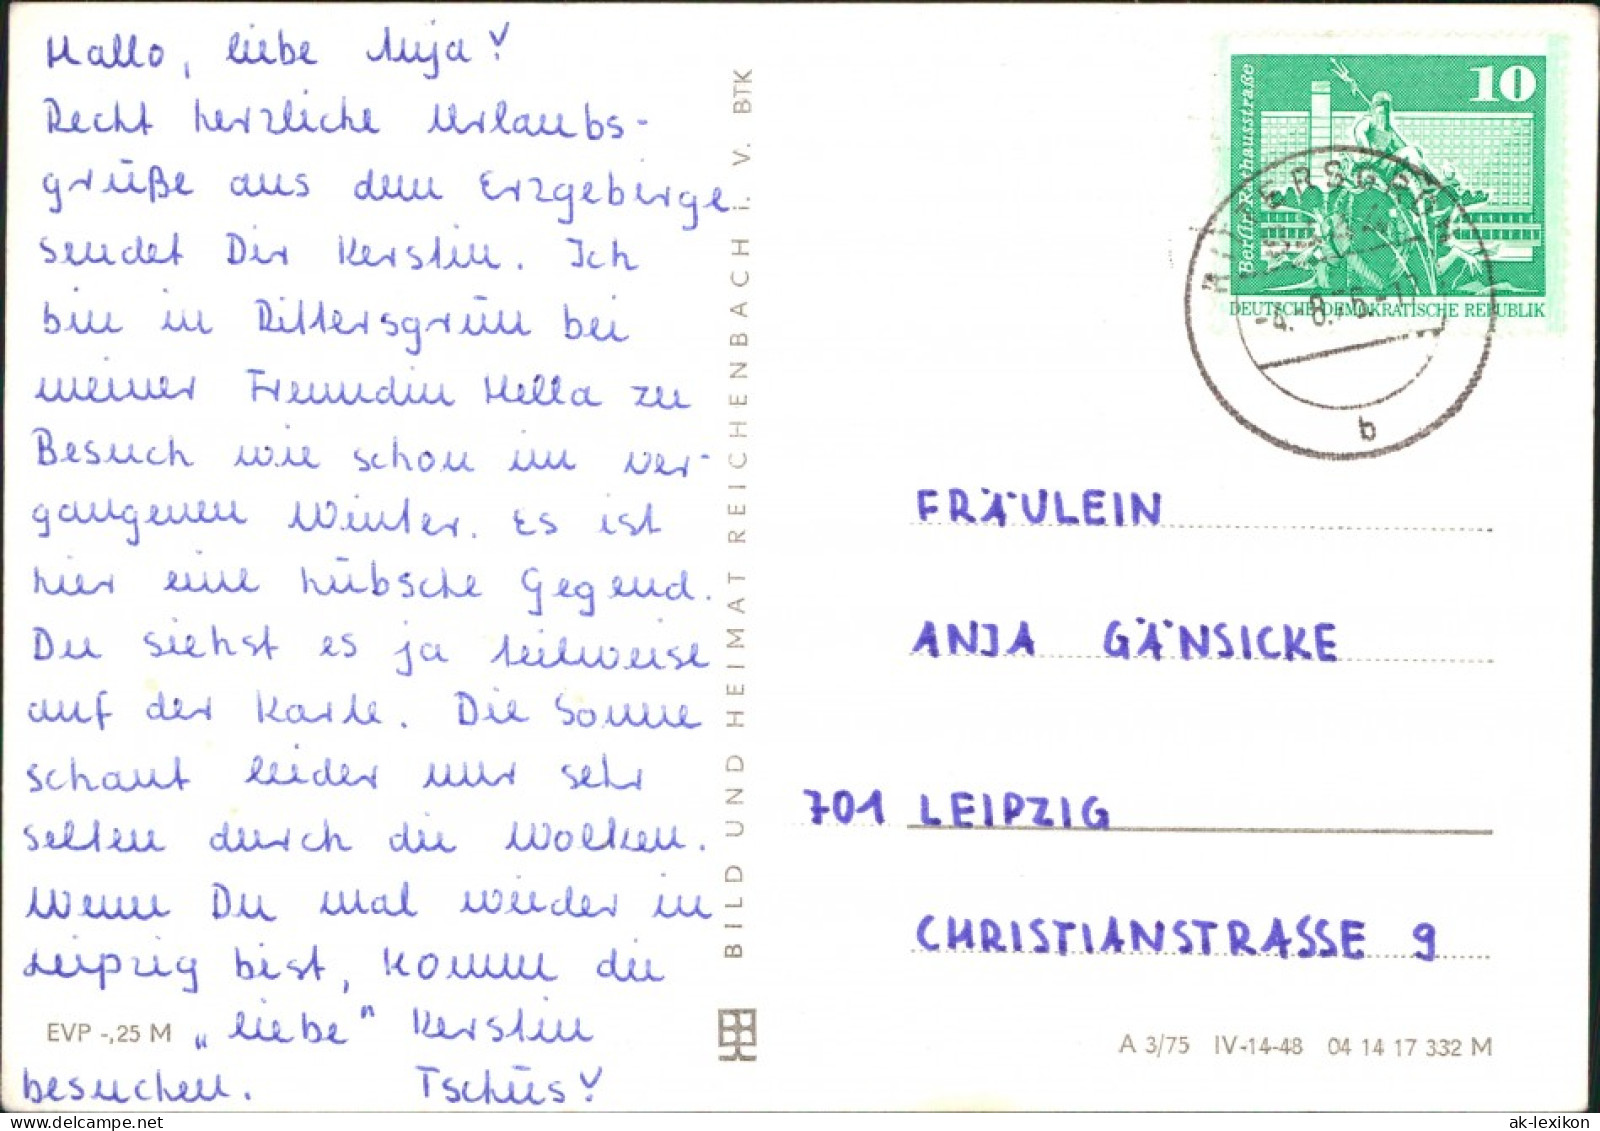 Hallo, liebe Anja!
Recht herzliche Urlaubs-
grüße aus dem Erzgebirge
sendet Dir Kerstin. Ich
bin in Rittersgrün bei
meiner Freundin Hella zu
Besuch wie schon im ver-
gangenen Winter. Es ist
hier eine hübsche Gegend.
Du siehst es ja teilweise
auf der Karte. Die Sonne
schaut leider nur sehr
selten durch die Wolken.
Wenn Du mal wieder in
Leipzig bist, komm die
„liebe" Kerstin
besuchen. Tschüs!
EVP -,25 M
BILD UND HEIMAT REICHENBACH i. V. BTK
10
Berlin Rathausstraße
DEUTSCHE DEMOKRATISCHE REPUBLIK
RITTERSGRÜN
-4.-8.76.-17
b
FRÄULEIN
ANJA GÄNSICKE
701 LEIPZIG
CHRISTIANSTRASSE 9
A 3/75 IV-14-48 04 14 17 332 M
ak-lexikon